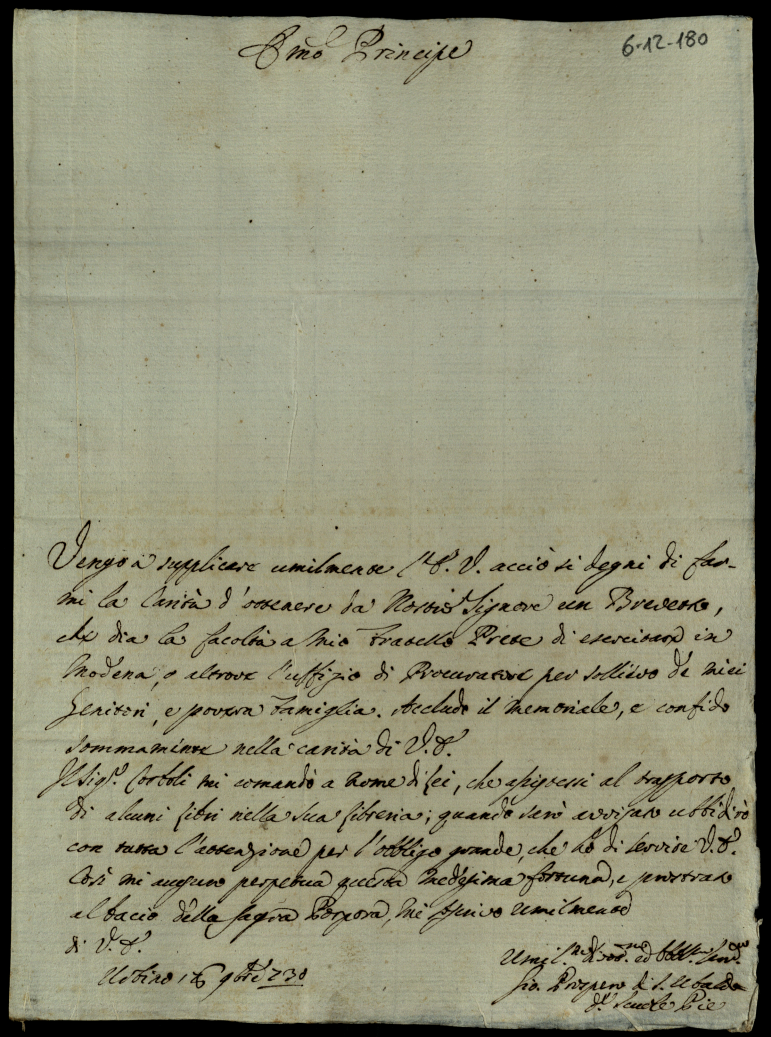 Em̃o Principe
6-12-180
Vengo a supplicare umilmente l'E. V. acciò si degni di far-
mi la Carità d'ottenere da Nostro Signore un Brevetto,
che dia la facoltà a mio Fratello Prete di esercitare in
Modena, o altrove l'uffizio di Procuratore per sollievo de miei
Genitori, e povera Famiglia. Accludo il memoriale, e confido
sommamente nella carità di V. E.
Il Sig.r Corboli mi comandò a nome di Lei, che assistessi al trasporto
di alcuni libri nella sua libreria; quando sarò avvisato ubbidirò
con tutta l'attenzione per l'obbligo grande, che hò di servire V. E.
Così mi auguro perpetua questa medesima fortuna, e prostrato
al bacio della Sagra Porpora, mi scrivo umilmente
di V. E.
Urbino 16 9bre 730
Gio. Prospero di S. Ubaldo
Scuole Pie